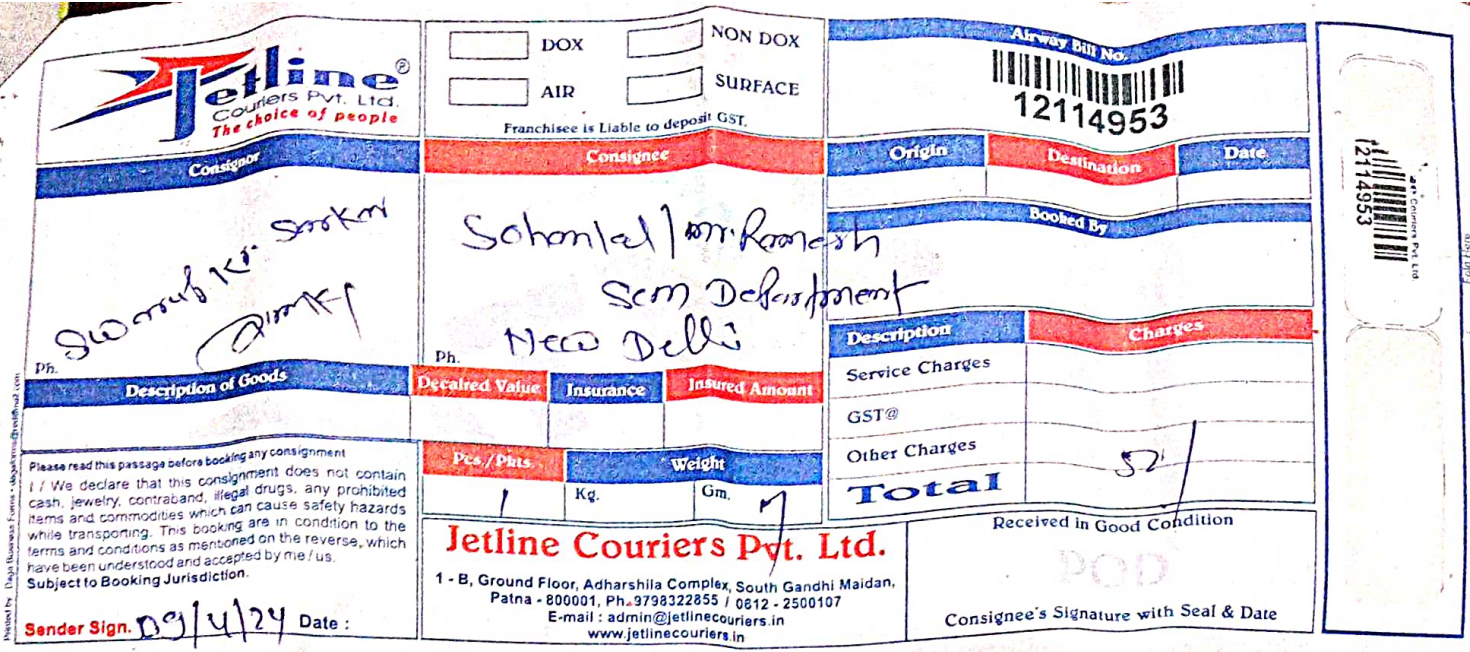 Jetline®
Couriers Pvt. Ltd.
The choice of people
DOX
NON DOX
AIR
SURFACE
Franchisee is Liable to deposit GST.
Airway Bill No.
12114953
Consignor
Ph.
Consignee
Sohanlal / Mr. Ramesh
Scm Department
New Delhi
Ph.
Origin
Destination
Date
Booked By
Description of Goods
Decalred Value
Insurance
Insured Amount
Description
Charges
Service Charges
GST@
Other Charges
Total
52/
Please read this passage before booking any consignment
I / We declare that this consignment does not contain
cash, jewelry, contraband, illegal drugs, any prohibited
items and commodities which can cause safety hazards
while transporting. This booking are in condition to the
terms and conditions as mentioned on the reverse, which
have been understood and accepted by me / us.
Subject to Booking Jurisdiction.
Sender Sign. 09/4/24 Date :
Pcs./Pkts.
Weight
1
Kg.
Gm.
Jetline Couriers Pvt. Ltd.
1 - B, Ground Floor, Adharshila Complex, South Gandhi Maidan,
Patna - 800001, Ph. 9798322855 / 0612 - 2500107
E-mail : admin@jetlinecouriers.in
www.jetlinecouriers.in
Received in Good Condition
POD
Consignee's Signature with Seal & Date
Couriers Pvt. Ltd.
12114953